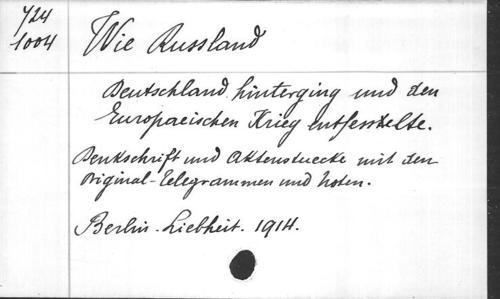 724
1004
Wie Russland
Deutschland hinterging und den
Europaeischen Krieg entfesselte.
Denkschrift und Aktenstuecke mit den
Original-Telegrammen und Noten.
Berlin. Liebheit. 1914.